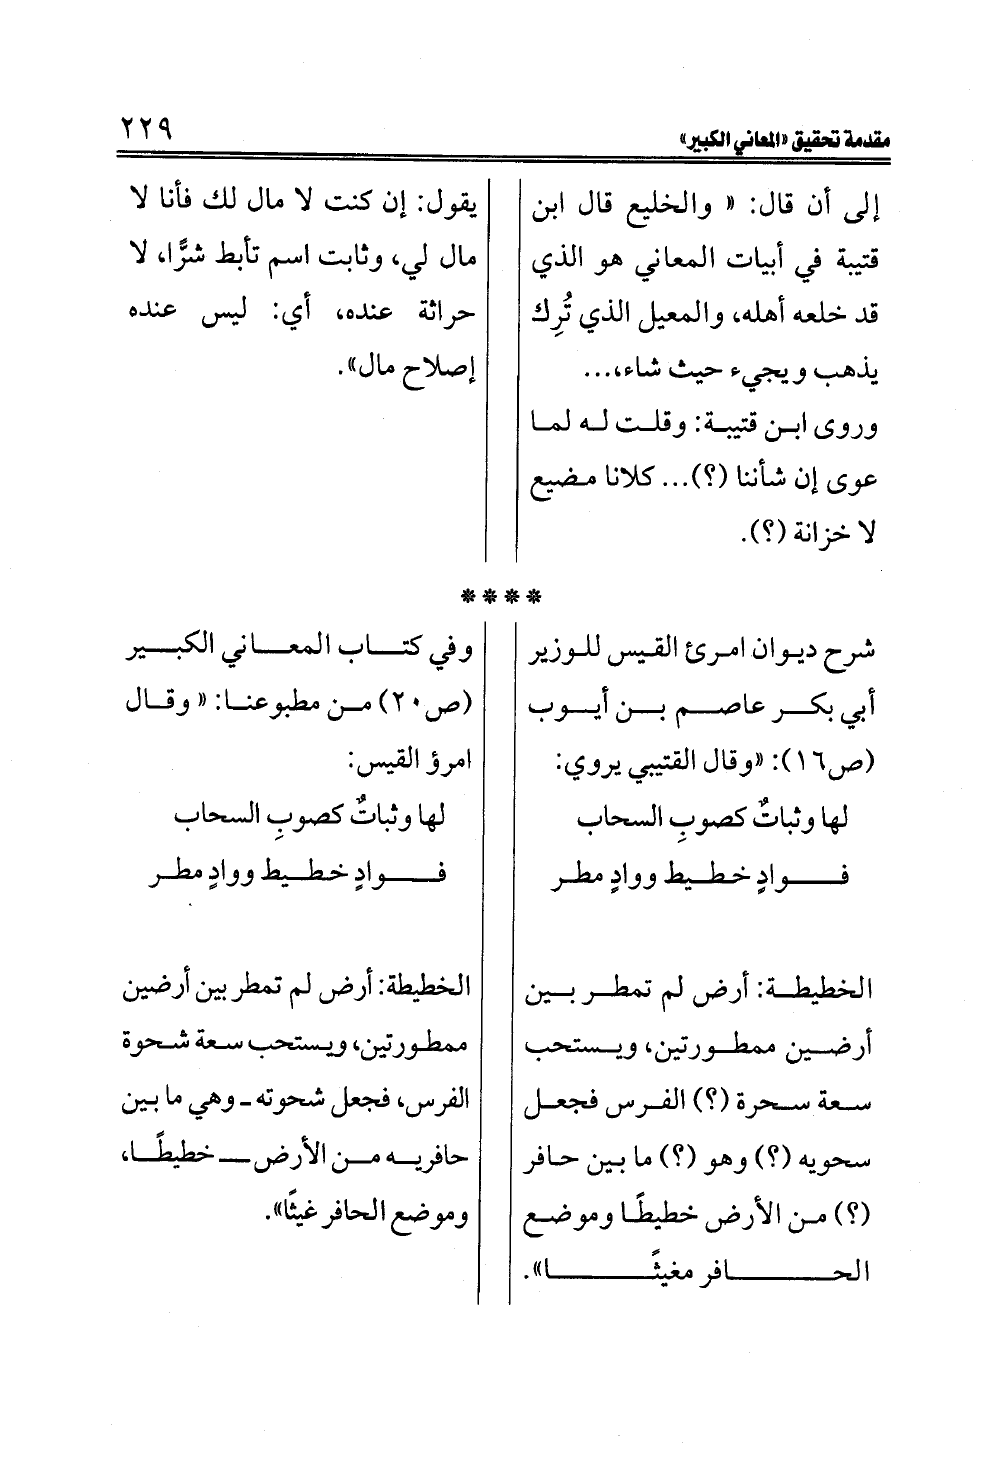 مقدمة تحقيق «المعاني الكبير»
٢٢٩
إلى أن قال: « والخليع قال ابن
قتيبة في أبيات المعاني هو الذي
قد خلعه أهله، والمعيل الذي تُرِك
يذهب ويجيء حيث شاء،...
وروى ابن قتيبة: وقلت له لما
عوى إن شأننا (؟)... كلانا مضيع
لا خزانة (؟).
يقول: إن كنت لا مال لك فأنا لا
مال لي، وثابت اسم تأبط شرًّا، لا
حراثة عنده، أي: ليس عنده
إصلاح مال».
****
شرح ديوان امرئ القيس للوزير
أبي بكر عاصم بن أيوب
(ص١٦): «وقال القتيبي يروي:
لها وثباتٌ كصوبِ السحاب
فوادٍ خطيط ووادٍ مطر
الخطيطة: أرض لم تمطر بين
أرضين ممطورتين، ويستحب
سعة سحرة (؟) الفرس فجعل
سحويه (؟) وهو (؟) ما بين حافر
(؟) من الأرض خطيطًا وموضع
الحافر مغيثًا».
وفي كتاب المعاني الكبير
(ص٢٠) من مطبوعنا: « وقال
امرؤ القيس:
لها وثباتٌ كصوبِ السحاب
فوادٍ خطيط ووادٍ مطر
الخطيطة: أرض لم تمطر بين أرضين
ممطورتين، ويستحب سعة شحوة
الفرس، فجعل شحوته - وهي ما بين
حافريه من الأرض - خطيطًا،
وموضع الحافر غيثًا».